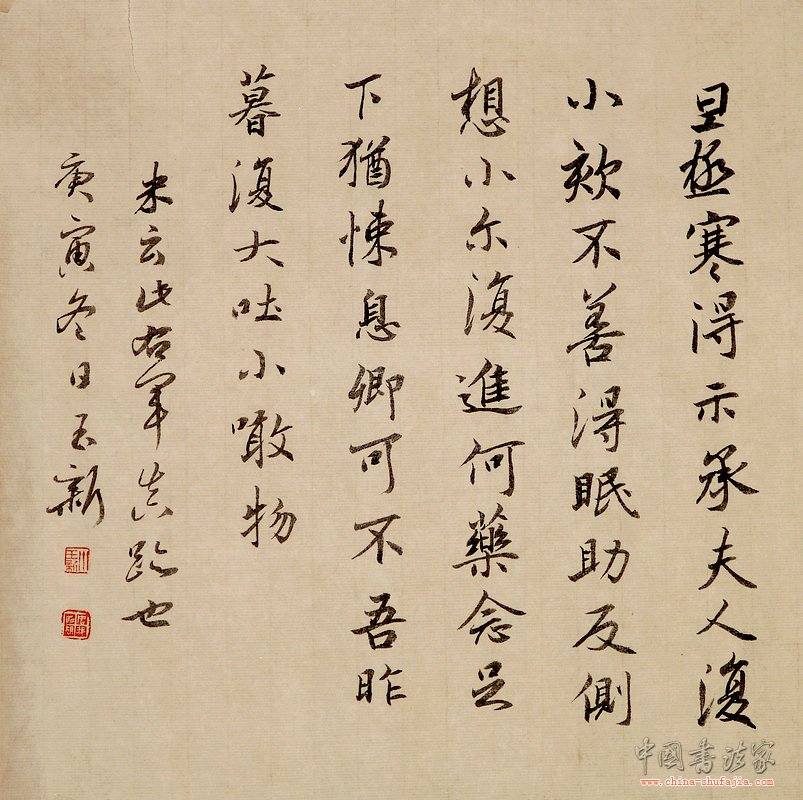 旦極寒得示承夫人復
小欬不善得眠助反側
想小尔復進何藥念足
下猶悚息卿可不吾昨
暮復大吐小噉物
米云此右军真跡也
庚寅冬日玉新
中国书法家
www.china-shufajia.com